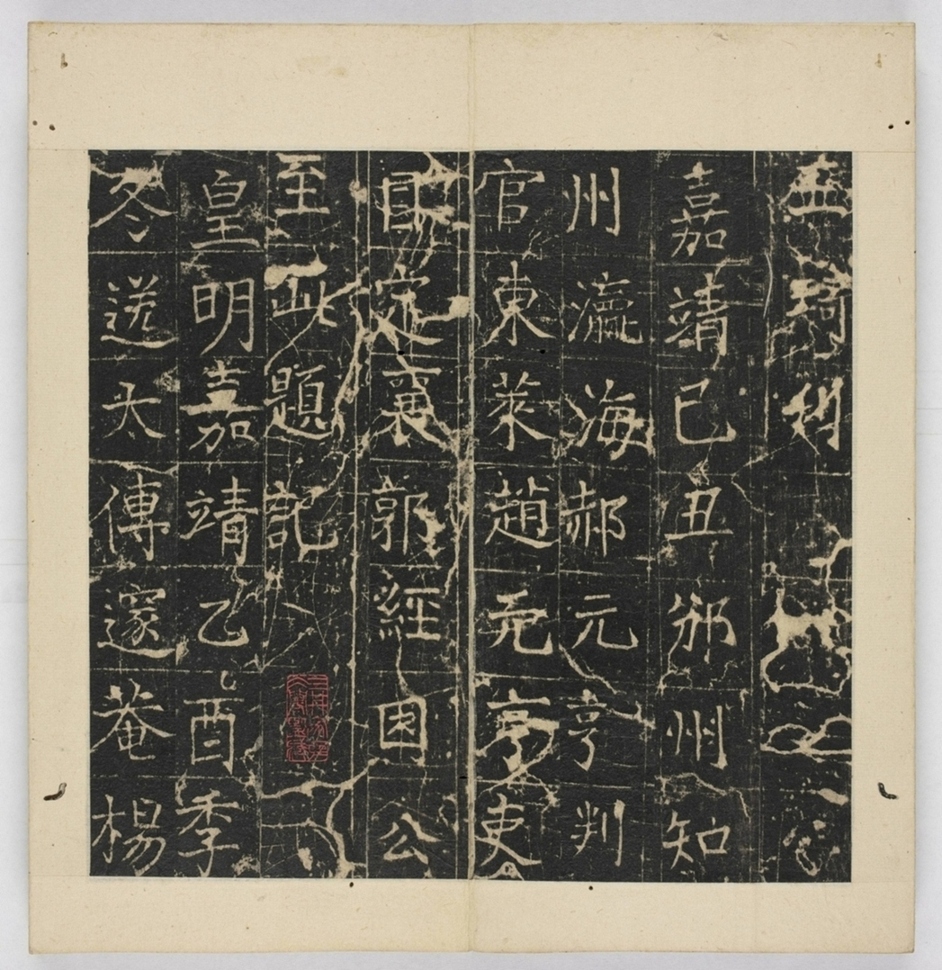 琦刊
嘉靖己丑邠州知
州瀛海郝元亨判
官東萊趙亨吏
目定襄郭經因公
至此題記
皇明嘉靖乙酉季
冬送太傅邃菴楊